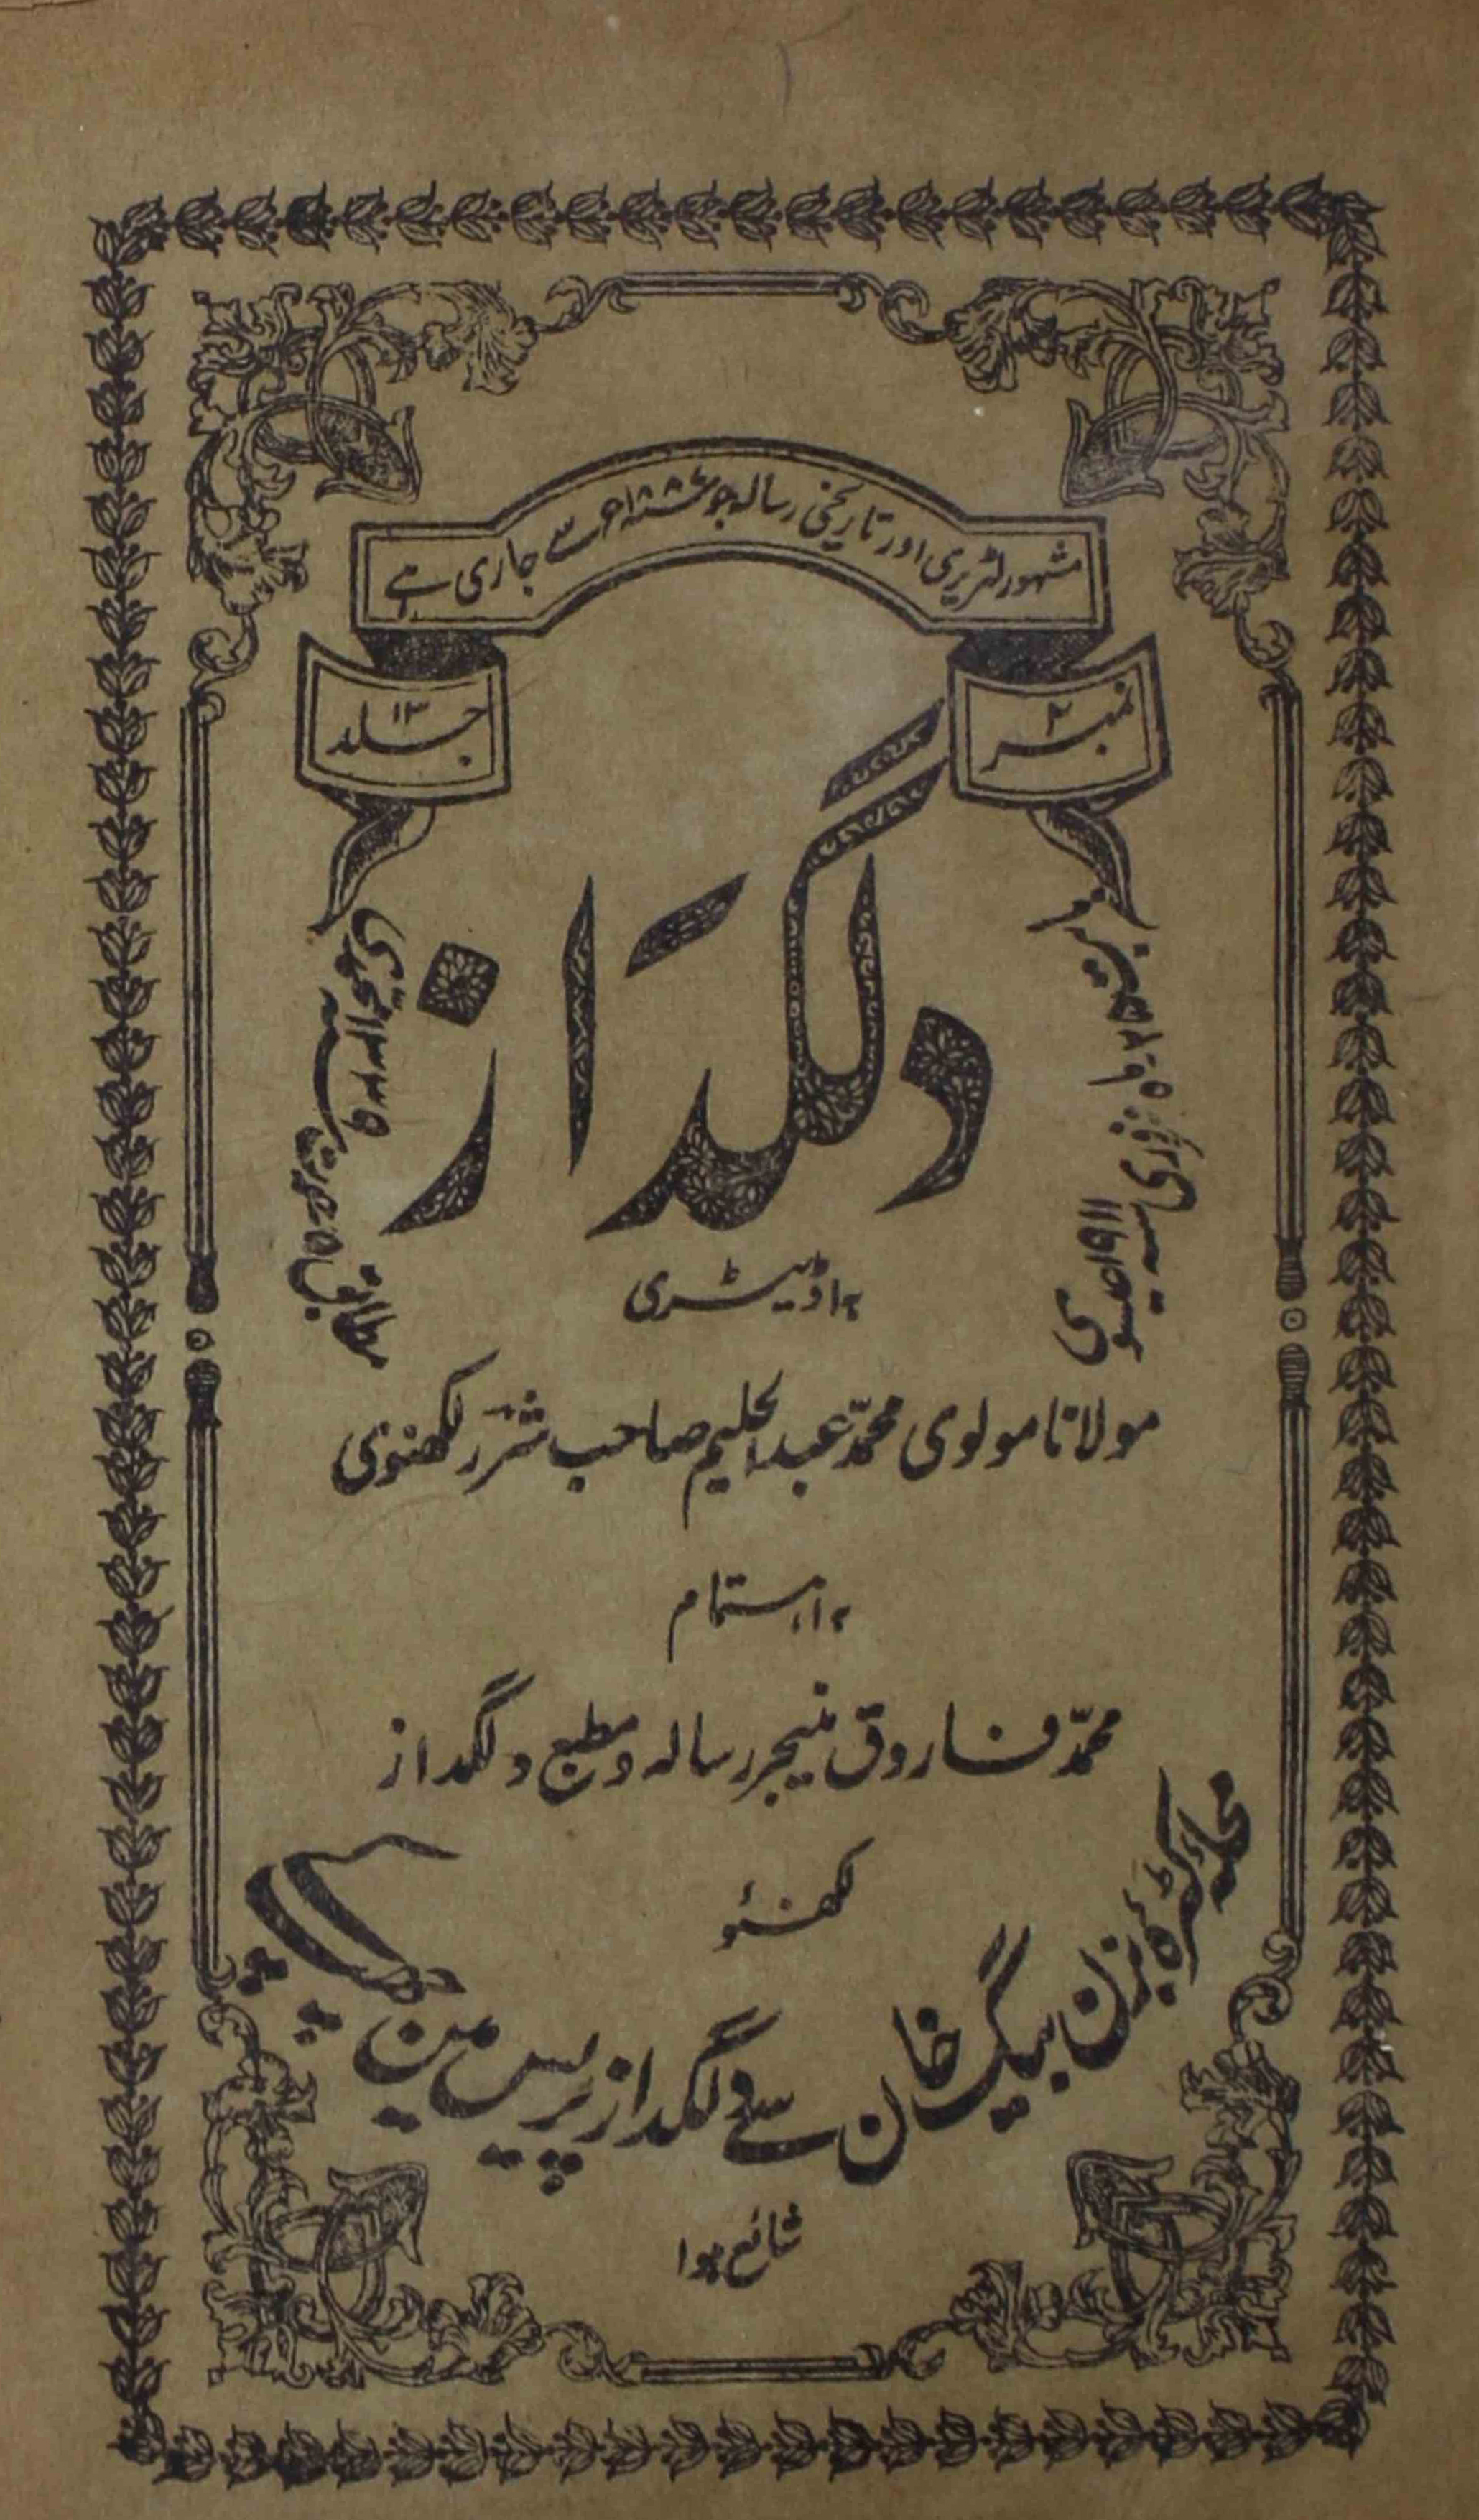 مشہور لٹریری اور تاریخی رسالہ جو ۱۸۸۷ء سے جاری ہے
نمبر ۲
جلد ۱۳
دلگداز
فروری سنہ ۱۹۱۱ عیسوی
مطابق ماہ صفر سنہ ۱۳۲۹ ہجری
باڈیٹری
مولانا مولوی محمّد عبدالحلیم صاحب شرر لکھنوی
باہتمام
محمّد فاروق منیجر رسالہ و مطبع دلگداز
لکھنؤ
محلہ کٹرہ بزن بیگ خان سے دلگداز پریس مین
شائع ہوا